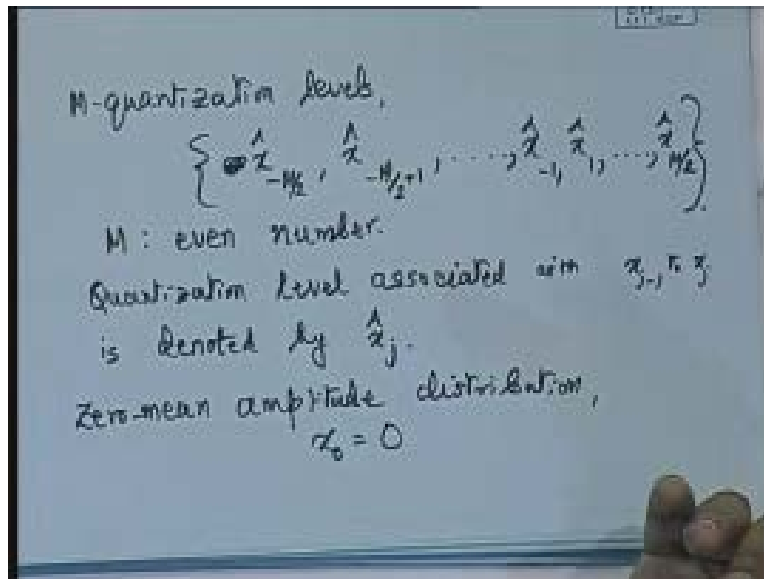 M-quantization levels,
{ x̂_{-M/2}, x̂_{-M/2+1}, ....., x̂_{-1}, x̂_{1}, ...., x̂_{M/2} }
M : even number.
Quantization level associated with x_{j-1} to x_j
is denoted by x̂_j.
Zero-mean amplitude distribution,
x_0 = 0